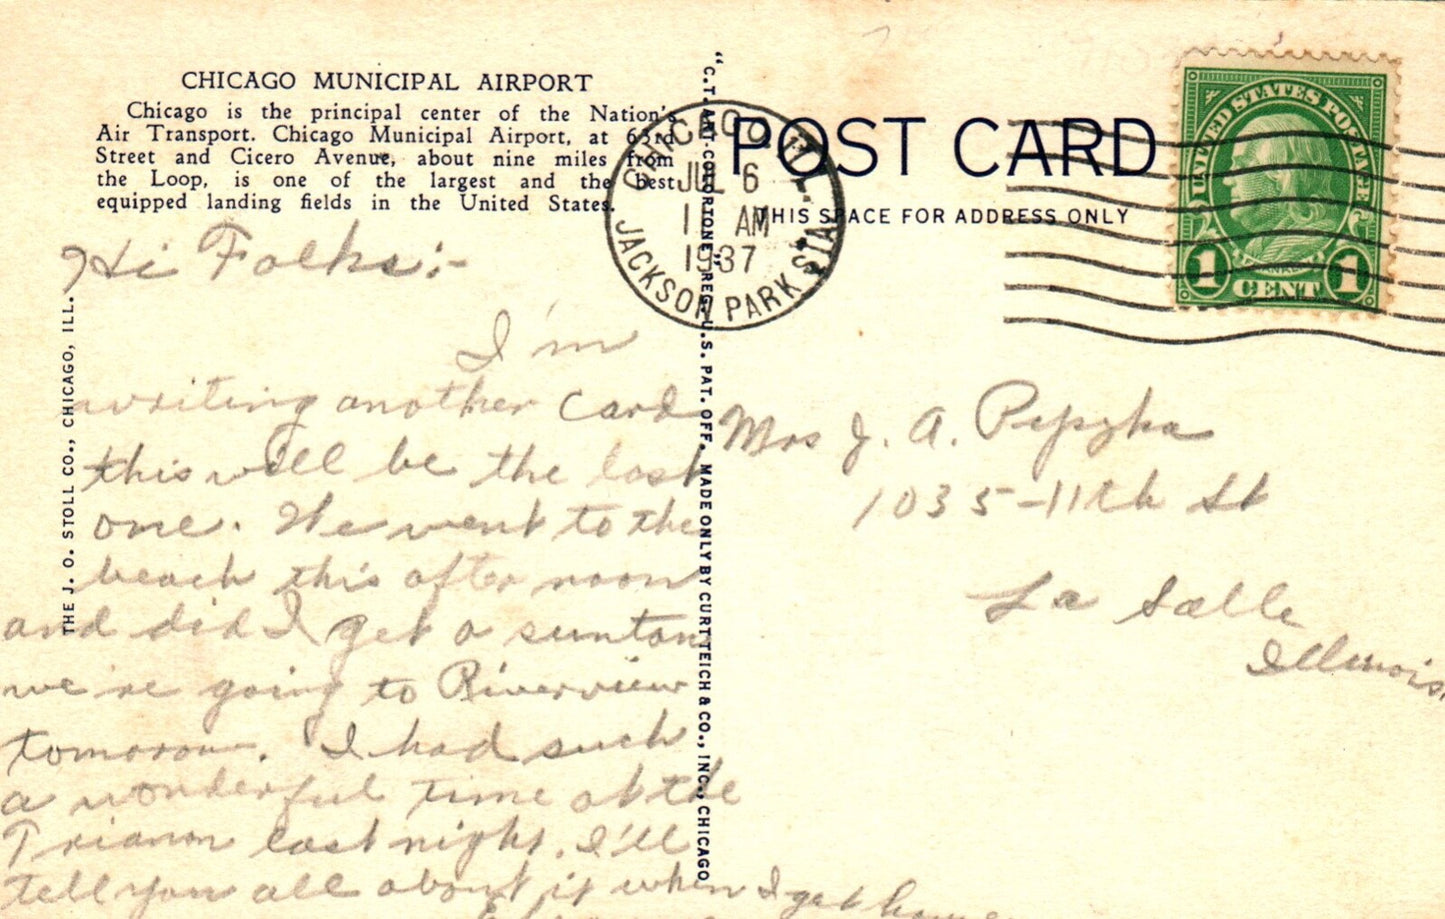 CHICAGO MUNICIPAL AIRPORT
Chicago is the principal center of the Nation's
Air Transport. Chicago Municipal Airport, at 63rd
Street and Cicero Avenue, about nine miles from
the Loop, is one of the largest and the best
equipped landing fields in the United States.
Hi Folks:-
I'm
writing another card
this will be the last
one. We went to the
beach this after noon
and did I get a suntan
we're going to Riverview
tomorow. I had such
a wonderful time at the
Trianon last night. I'll
tell you all about it when I get home
THE J. O. STOLL CO., CHICAGO, ILL.
"C.T. ART-COLORTONE" REG. U.S. PAT. OFF. MADE ONLY BY CURT TEICH & CO., INC., CHICAGO
CHICAGO, ILL.
JUL 6
AM
1937
JACKSON PARK STA.
POST CARD
THIS SPACE FOR ADDRESS ONLY
UNITED STATES POSTAGE
FRANKLIN
1 CENT 1
Mrs J. A.
1035-11th St
La Salle
Illinois.